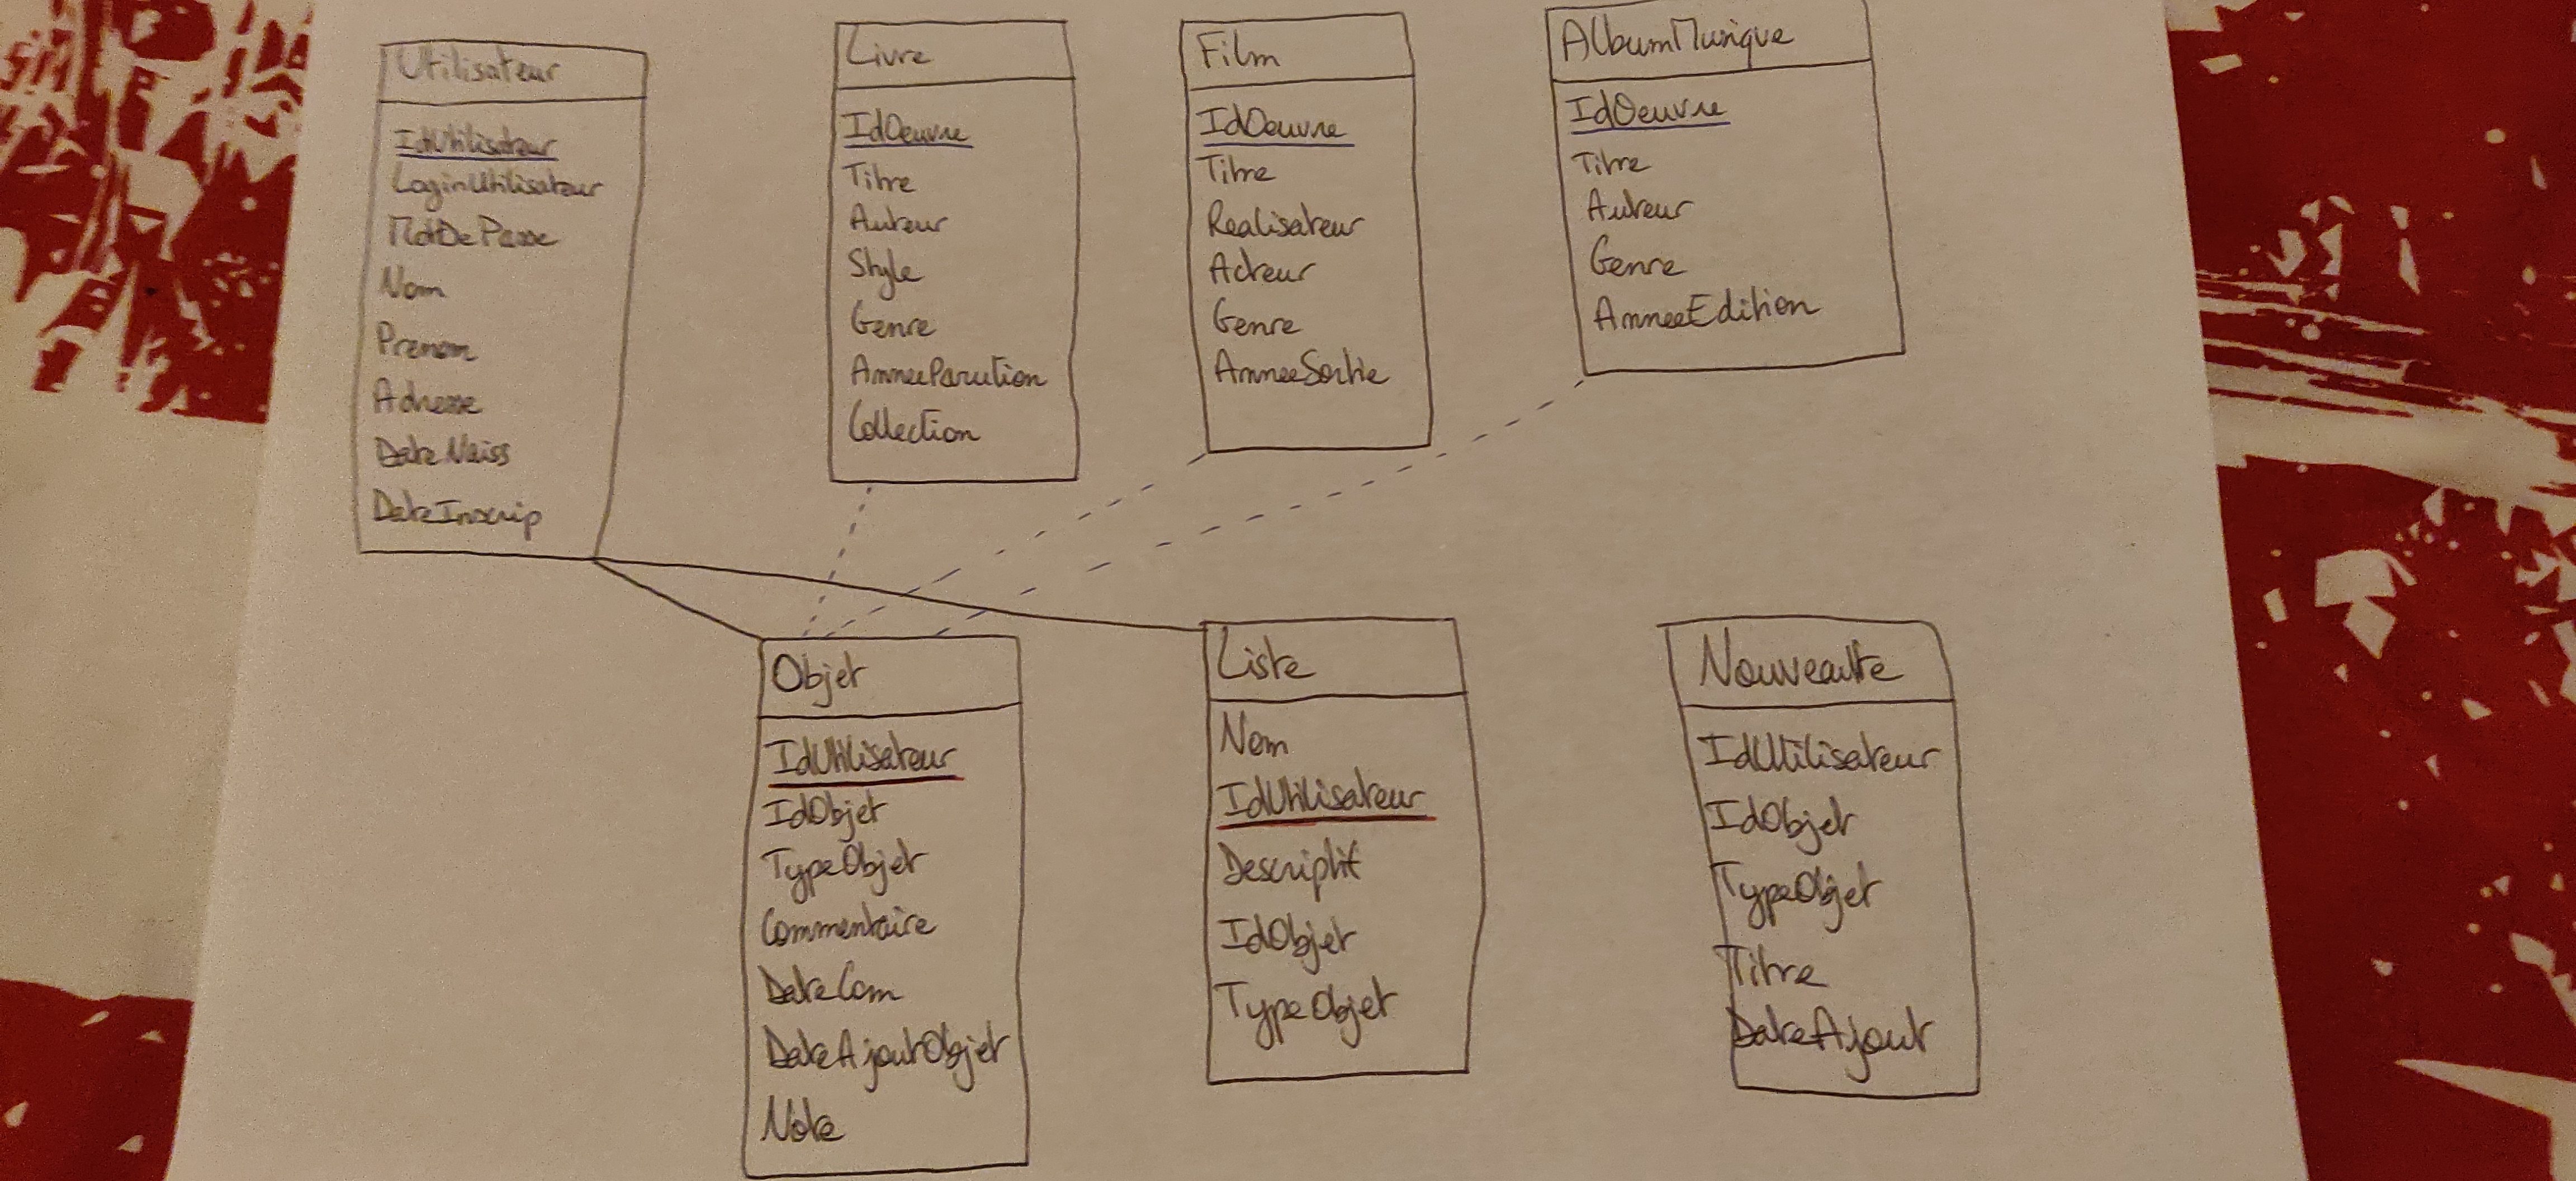 Utilisateur
IdUtilisateur
LoginUtilisateur
MotDePasse
Nom
Prenom
Adresse
DateNaiss
DateInscrip
Livre
IdOeuvre
Titre
Auteur
Style
Genre
AnneeParution
Collection
Film
IdOeuvre
Titre
Realisateur
Acteur
Genre
AnneeSortie
AlbumMusique
IdOeuvre
Titre
Auteur
Genre
AnneeEdition
Objet
IdUtilisateur
IdObjet
TypeObjet
Commentaire
DateCom
DateAjoutObjet
Note
Liste
Nom
IdUtilisateur
Descriptif
IdObjet
TypeObjet
Nouveaute
IdUtilisateur
IdObjet
TypeObjet
Titre
DateAjout